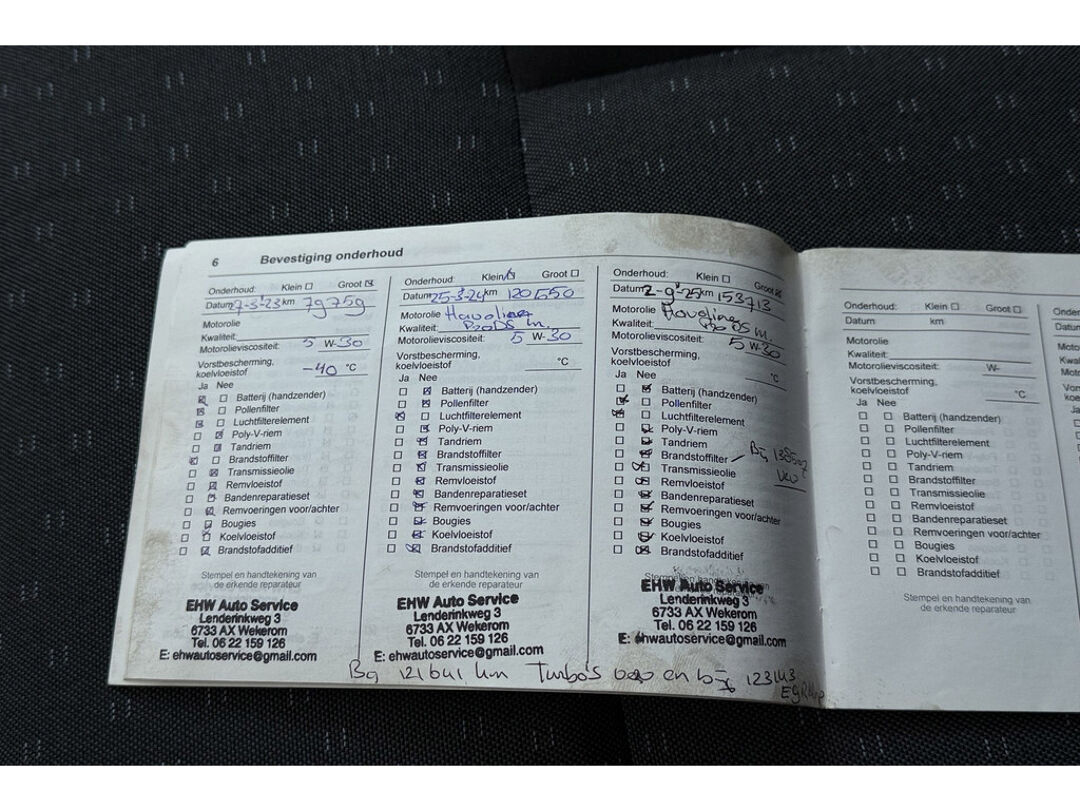 6 Bevestiging onderhoud
Onderhoud: Klein Groot
Datum 27-3-23 km 79759
Motorolie
Kwaliteit:
Motorolieviscositeit: 5 W-30
Vorstbescherming,
koelvloeistof -40 °C
Ja Nee
Batterij (handzender)
Pollenfilter
Luchtfilterelement
Poly-V-riem
Tandriem
Brandstoffilter
Transmissieolie
Remvloeistof
Bandenreparatieset
Remvoeringen voor/achter
Bougies
Koelvloeistof
Brandstofadditief
Stempel en handtekening van
de erkende reparateur
EHW Auto Service
Lenderinkweg 3
6733 AX Wekerom
Tel. 06 22 159 126
E: ehwautoservice@gmail.com
Onderhoud: Klein Groot
Datum 25-3-24 km 120550
Motorolie Havoline
Kwaliteit: ProDS m.
Motorolieviscositeit: 5 W-30
Vorstbescherming,
koelvloeistof °C
Ja Nee
Batterij (handzender)
Pollenfilter
Luchtfilterelement
Poly-V-riem
Tandriem
Brandstoffilter
Transmissieolie
Remvloeistof
Bandenreparatieset
Remvoeringen voor/achter
Bougies
Koelvloeistof
Brandstofadditief
Stempel en handtekening van
de erkende reparateur
EHW Auto Service
Lenderinkweg 3
6733 AX Wekerom
Tel. 06 22 159 126
E: ehwautoservice@gmail.com
Onderhoud: Klein Groot
Datum 2-9-25 km 153713
Motorolie Havoline
Kwaliteit: Pro DS m.
Motorolieviscositeit: 5 W-30
Vorstbescherming,
koelvloeistof °C
Ja Nee
Batterij (handzender)
Pollenfilter
Luchtfilterelement
Poly-V-riem
Tandriem
Brandstoffilter
Transmissieolie
Remvloeistof
Bandenreparatieset
Remvoeringen voor/achter
Bougies
Koelvloeistof
Brandstofadditief
EHW Auto Service
Lenderinkweg 3
6733 AX Wekerom
Tel. 06 22 159 126
E: ehwautoservice@gmail.com
Bij 121641 km Turbo's en bij 123143
Onderhoud: Klein Groot
Datum km
Motorolie
Kwaliteit:
Motorolieviscositeit: W-
Vorstbescherming,
koelvloeistof °C
Ja Nee
Batterij (handzender)
Pollenfilter
Luchtfilterelement
Poly-V-riem
Tandriem
Brandstoffilter
Transmissieolie
Remvloeistof
Bandenreparatieset
Remvoeringen voor/achter
Bougies
Koelvloeistof
Brandstofadditief
Stempel en handtekening van
de erkende reparateur